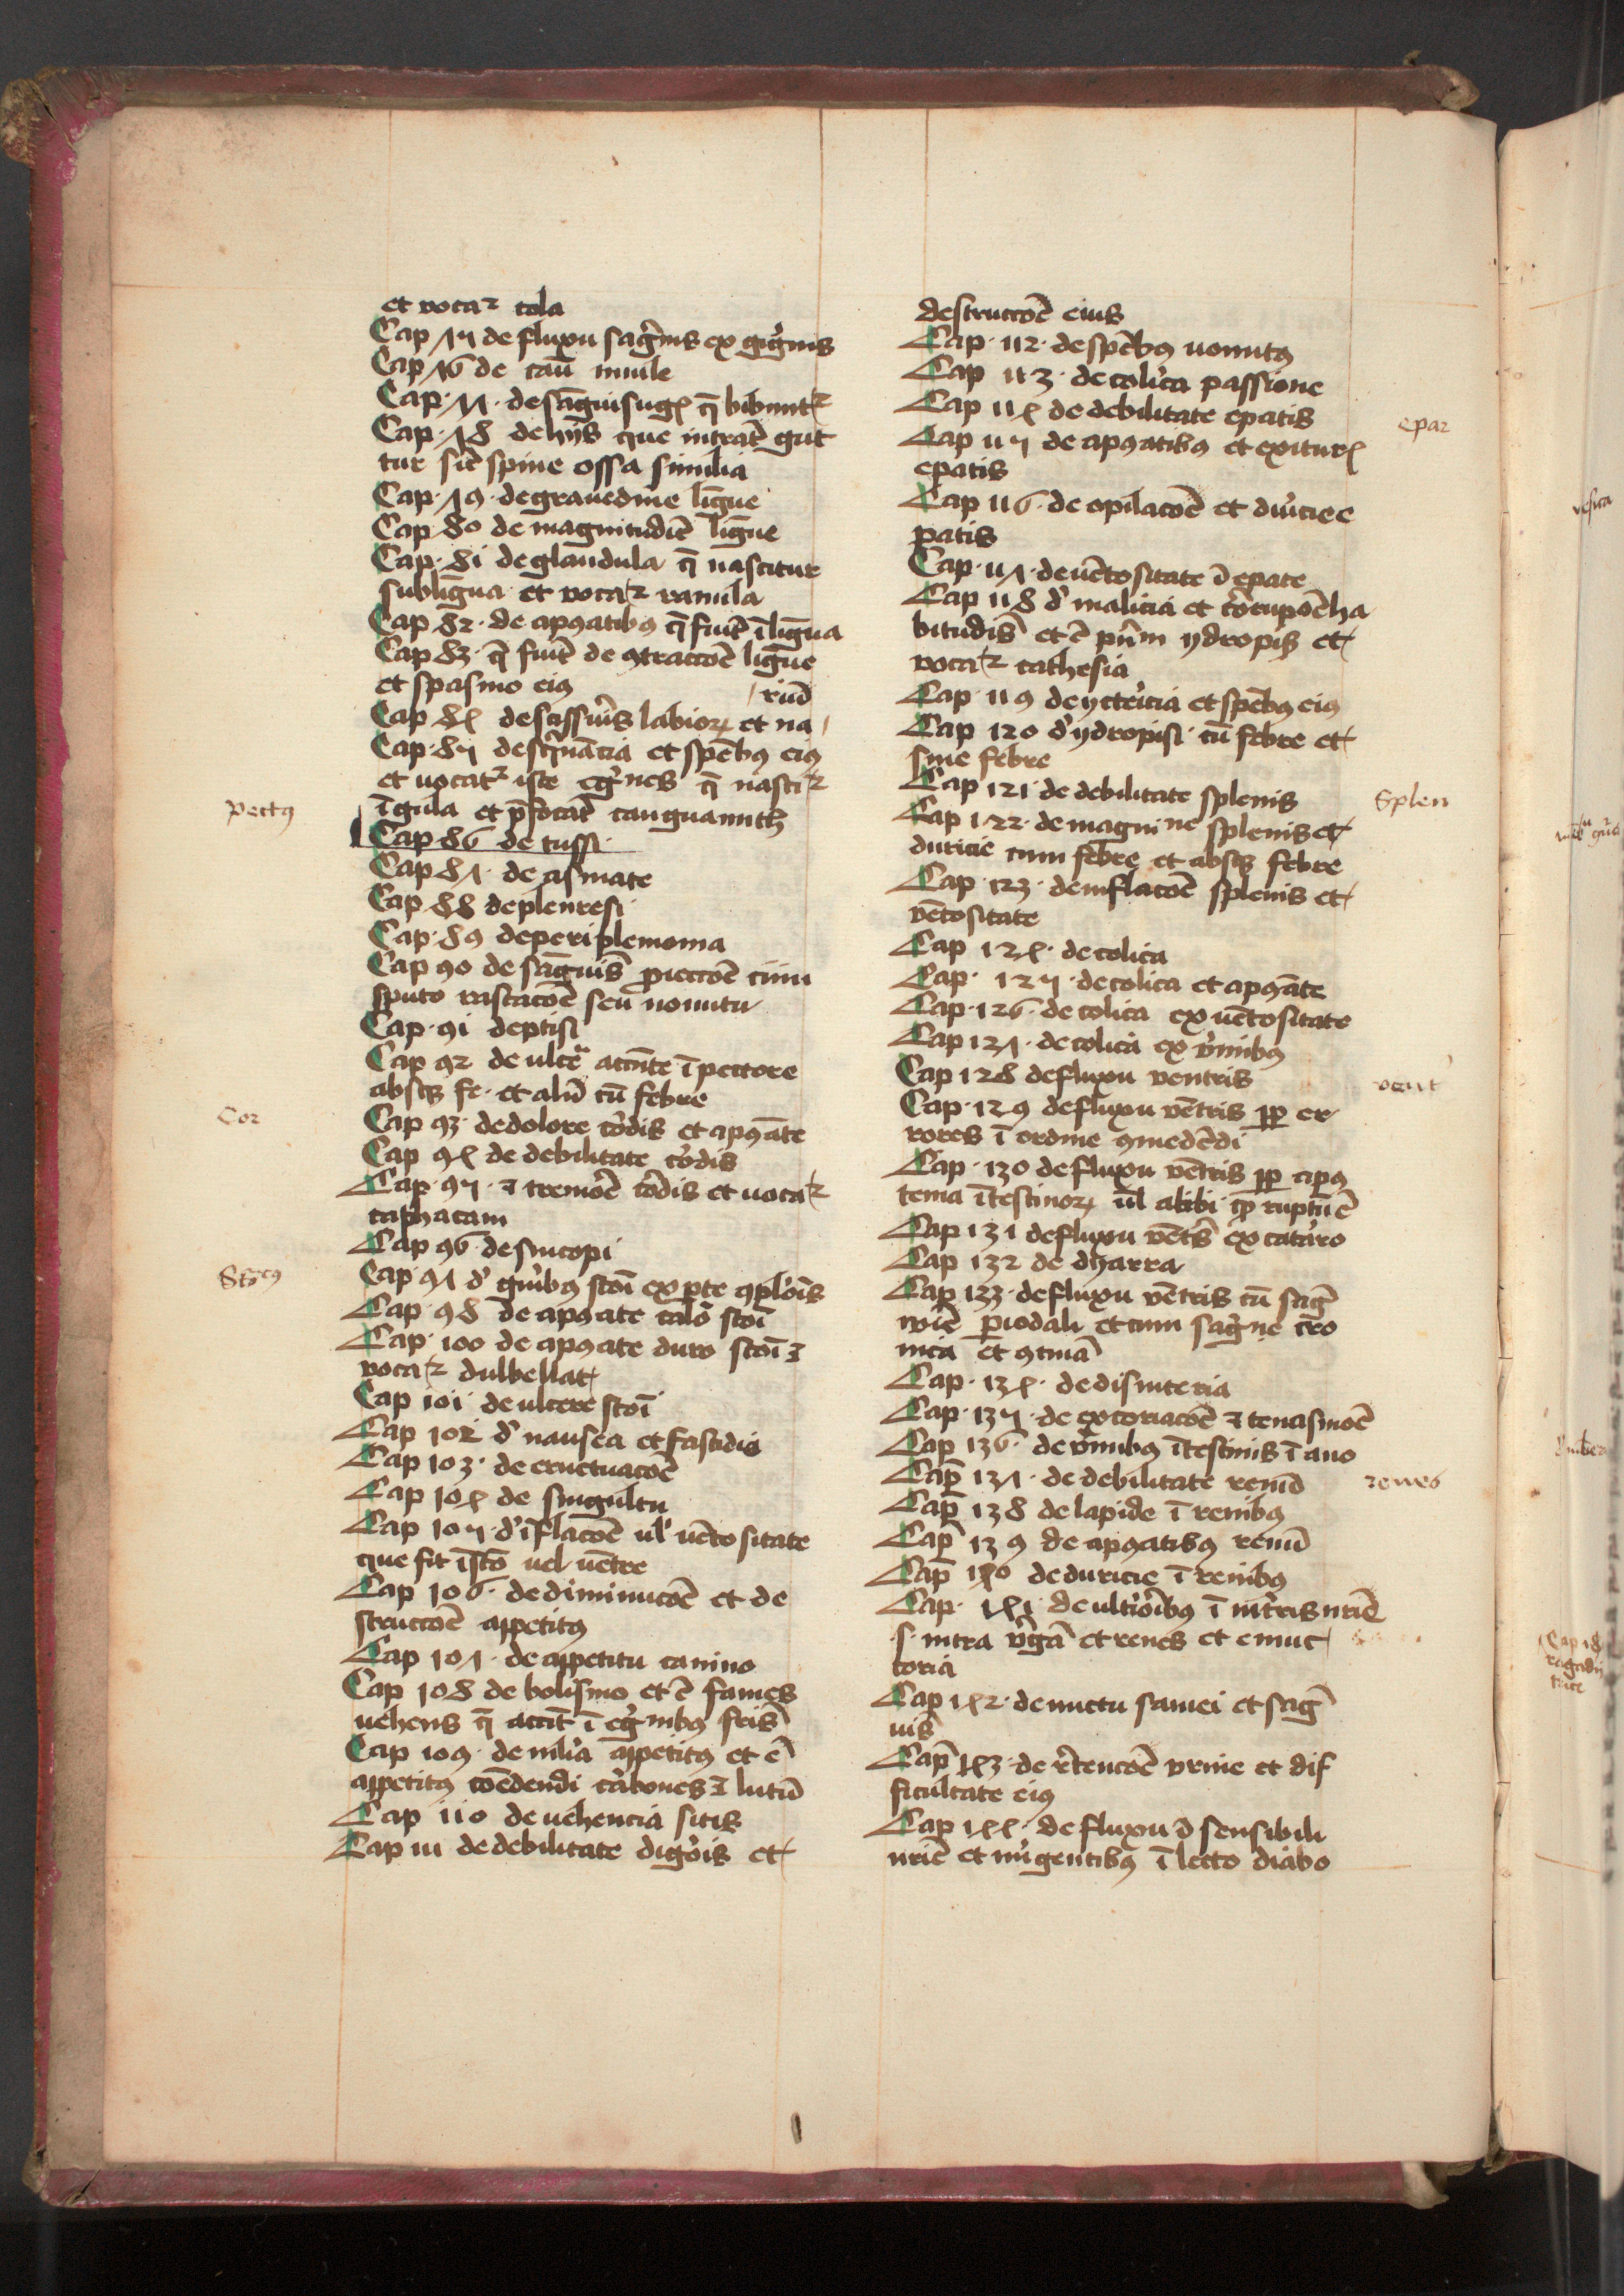 et vocat᷑ tola
Cap 75 de fluxu sag̅ı̅nis ex gi̅gi̅nis
Cap 76 de casu̅ uuule
Cap · 77 · de sa̅guisug͛ q̅ bibunt᷑
Cap · 78 de hijs que intra̅t gut
tur sic̅ spine ossa similia
Cap · 79 · de grauedine li̅gue
Cap · 80 de magnitudi̅e li̅gue
Cap · 81 de glandula q̅ nascitur
sub li̅gua et vocat᷑ ranula
Cap 82 · de apꝯatibꝯ q̅ fiu̅t i̅ li̅gua
Cap 83 · q̅ fiu̅t de ꝯtracco̅e li̅gue
et spasmo eiꝯ
riu̅
Cap 84 de scissuris labioꝝ et na
Cap · 85 de sq̅na̅cia et spe̅bꝯ eiꝯ
et uocat᷑ iste q̅ nascit᷑
i̅ gula et p̅focat
Pectꝯ
Cap 86 de tussi
Cap 87 · de asmate
Cap 88 de pleuresi
Cap · 89 de periplemonia
Cap 90 de sa̅guis̅ piecco̅e cum
sputo rascaco̅e seu uomitu
Cap · 91 de ptisi
Cap 92 de ulce̅ acc̅nte i̅ pectore
absqꝫ fe · et aliu̅ cu̅ febre
Cor
Cap 93 · de dolore cordis et apꝯa̅te
Cap 94 de debilitate cordis
Cap · 95 · de tremo̅e cordis et uocat᷑
caphacam
Cap 96 · de sincopi
Sto̅cꝯ
Cap · 97 d̓ stoi̅ ex p̲te ꝯplo̅is
Cap · 98 de apꝯate calo̅ stoi̅
Cap · 100 de apꝯate duro stoi̅ ꝫ
vocat᷑ dulbellat
Cap 101 de ulcere stoi̅
Cap 102 d̓ nausea et fastidio
Cap 103 · de eructuaco̅e
Cap 104 de singultu
Cap 105 · d̓ i̅flaco̅e ul̓ ue̅tositate
que fit i̅ sto̅ uel ue̅tre
Cap 106 · de diminuco̅e et de
strucco̅e appetitꝯ
Cap 107 · de appetitu canino
Cap 108 de bolismo et e̅ fames
uehens q̅ acci̅t i̅ fris̅
Cap 109 · de appetitꝯ et e̅
appetitꝯ come̅dendi carbones ꝫ lutu̅
Cap 110 de uehencia sitis
Cap 111 de debilitate digo̅is et
destrucco̅e eius
Cap · 112 · de spe̅bꝯ uomitꝯ
Cap 113 · de colica passione
epar
Cap 114 de debilitate epatis
Cap 115 de apꝯatibꝯ et exitur͛
epatis
Cap 116 · de opilaco̅e et duricie e
patis
Cap · 117 · de ue̅tositate i̅ epate
Cap 118 d̓ malicia et corupco̅e ha
bitudis̅ et e̅ pri̅m ydropis et
vocat᷑ cathesia
Cap · 119 de yctericia et spe̅bꝯ eiꝯ
Cap 120 d̓ ydropisi cu̅ febre et
sine febre
Splen
Cap 121 · de debilitate splenis
Cap 122 · de magni ne splenis et
duricie cum febre et absqꝫ febre
Cap · 123 · de inflaco̅e splenis et
ve̅tositate
Cap 124 · de colica
Cap · 125 · de colica et apꝯa̅te
Cap · 126 · de colica ex ue̅tositate
Cap 127 · de colica ex v̅mibꝯ
vent̓
Cap 128 de fluxu ventris
Cap · 129 de fluxu ve̅tris p̲p̲ er
rores i̅ ordine ꝯmede̅di
Cap · 130 de fluxu ve̅tris p̲p̲ apꝯ
tema i̅testinoꝝ ul̅ alibi ruptu̅
Cap 131 de fluxu ve̅ts̅ ex cataro
Cap 132 de dyarra
Cap 133 · de fluxu ve̅tris cu̅ sag̅
p̲iodali et cum sag̅ne cro
nica et ꝯtinua̅
Cap · 134 · de disinteria
Cap · 135 · de excoriaco̅e ꝫ tenasmo̅e
Cap 136 · de v̅mibꝯ i̅testinis i̅ ano
renes
Cap̅ 137 · de debilitate renu̅
Cap̅ 138 de lapide i̅ renibꝯ
Cap̅ 139 de apꝯatibꝯ renu̅
Cap̅ 140 de duricie i̅ renibꝯ
Cap · 141 de i̅ urie̅
· s · intra v̅ga̅ et renes et emuc
toria
Cap 142 · de mictu saniei et sag̅
uis̅
Cap̅ 143 · de retenco̅e vrine et dif
ficultate eiꝯ
Cap 144 · de fluxu i̅sensibili
urie̅ et mi̅gentibꝯ i̅ lecto diabo